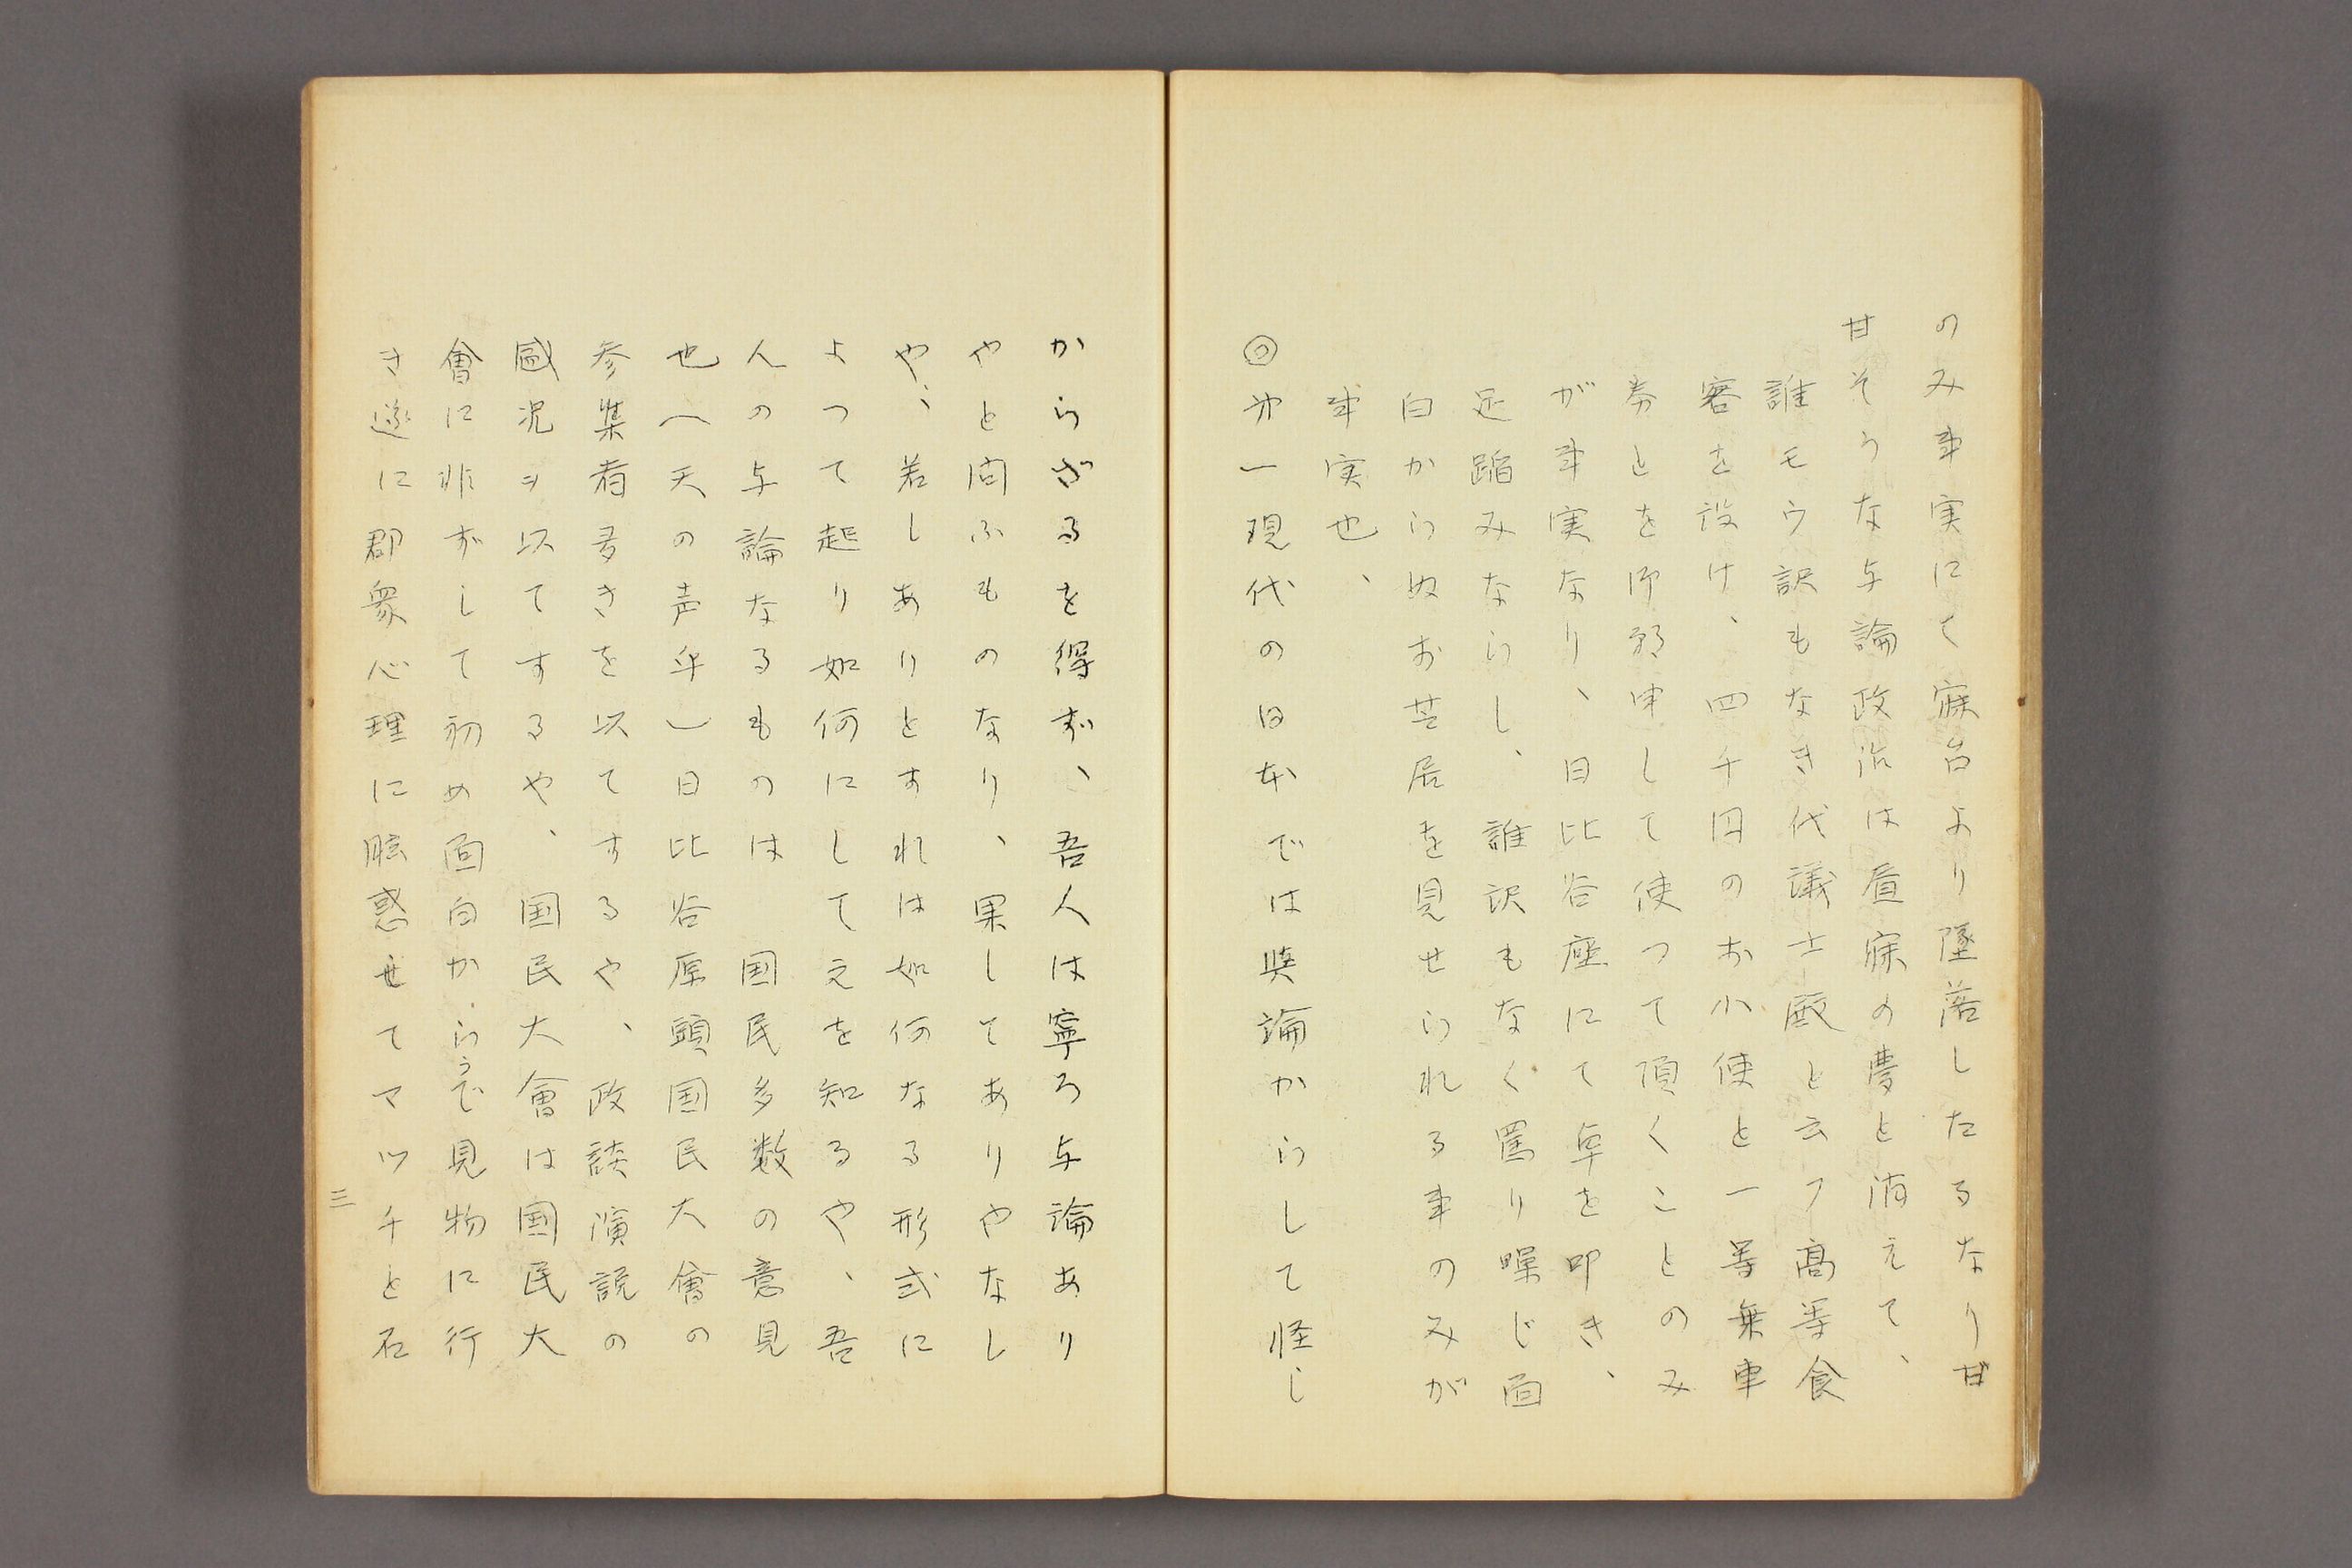 のみ事実にて寐台より墜落したるなり甘
甘そうな与論政治は昼寐の夢と消えて、
誰モウ訳もなき代議士殿と云フ高等食
客を設け、四千円のお小使と一等乗車
券とを御邪申して使つて頂くことのみ
が事実なり、日比谷座にて卓を叩き、
足踏みならし、誰訳もなく罵り噪じ面
白からぬお芝居を見せられる事のみが
事実也、
◎才一現代の日本では輿論からして怪し
からざるを得ず、吾人は寧ろ与論あり
やと問ふものなり、果してありやなし
や、若しありとすれは如何なる形式に
よつて起り如何にしてえを知るや、吾
人の与論なるものは 国民多数の意見
也(天の声乎)日比谷原頭国民大會の
参集者多きを以てするや、政談演説の
盛況ヲ以てするや、国民大會は国民大
會に非ずして初め面白からうで見物に行
き遂に郡衆心理に眩惑せてマツチと石
三